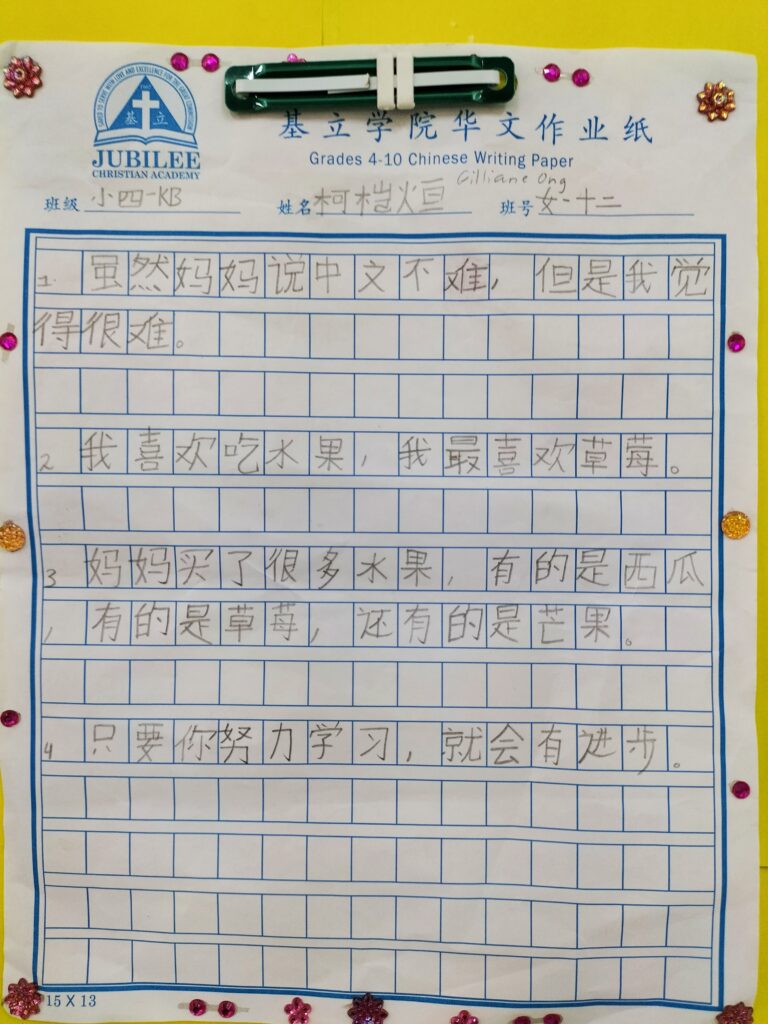 FOUND TO SERVE WITH LOVE AND EXCELLENCE FOR THE GREAT COMMISSION
基立
JUBILEE
CHRISTIAN ACADEMY
基立学院华文作业纸
Grades 4-10 Chinese Writing Paper
Gilliane Ong
班级 小四-KB 姓名 柯桤烜 班号 女-十二
1. 虽然妈妈说中文不难，但是我觉
得很难。
2 我喜欢吃水果，我最喜欢草莓。
3 妈妈买了很多水果，有的是西瓜
，有的是草莓，还有的是芒果。
4 只要你努力学习，就会有进步。
15 X 13